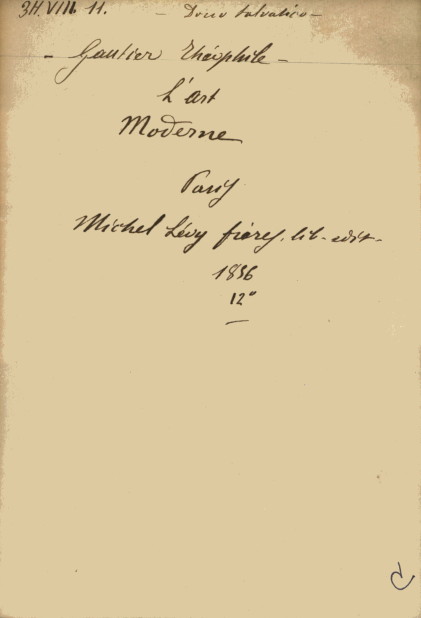 3H.VIII. 11. - Dono Selvatico -
- Gautier Théophile -
L'art
Moderne
Paris
Michel Lévy frères. lib- edit-
1856
12°